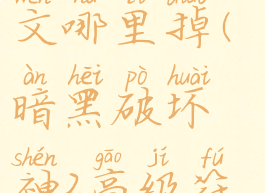 文哪里掉(
àn hēi pò huài
暗黑破坏
shén gāo jí fú
神)高级符